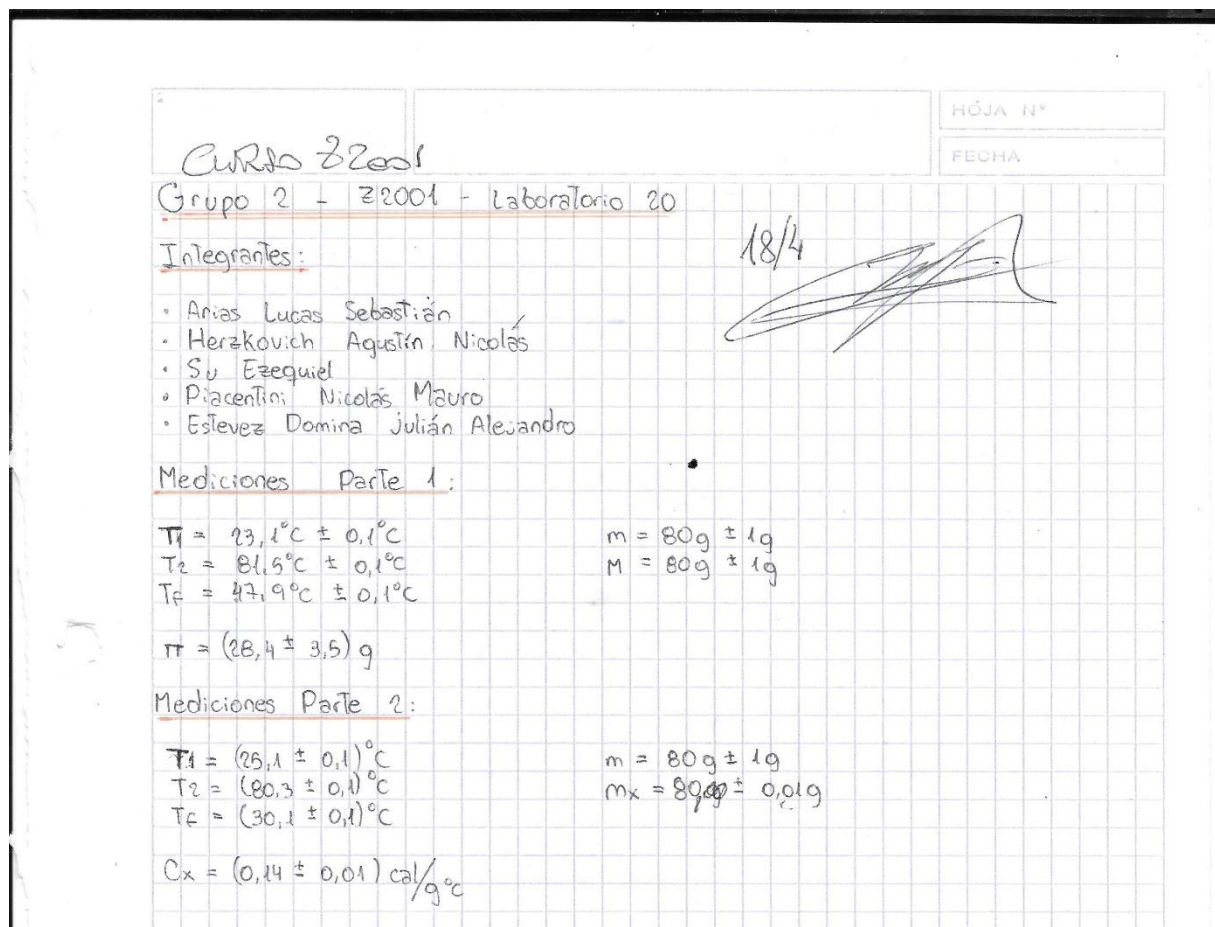 HOJA N°
FECHA
CURSO Z2001
Grupo 2 - Z2001 - Laboratorio 20
18/4
Integrantes:
• Arias Lucas Sebastián
• Herzkovich Agustín Nicolás
• Su Ezequiel
• Piacentini Nicolás Mauro
• Estevez Domina Julián Alejandro
Mediciones Parte 1:
T1 = 23,1°C ± 0,1°C
m = 80g ± 1g
T2 = 81,5°C ± 0,1°C
M = 80g ± 1g
Tf = 47,9°C ± 0,1°C
π = (28,4 ± 3,5) g
Mediciones Parte 2:
T1 = (25,1 ± 0,1)°C
m = 80g ± 1g
T2 = (80,3 ± 0,1)°C
mx = ± 0,01g
Tf = (30,1 ± 0,1)°C
Cx = (0,14 ± 0,01) cal/g°C